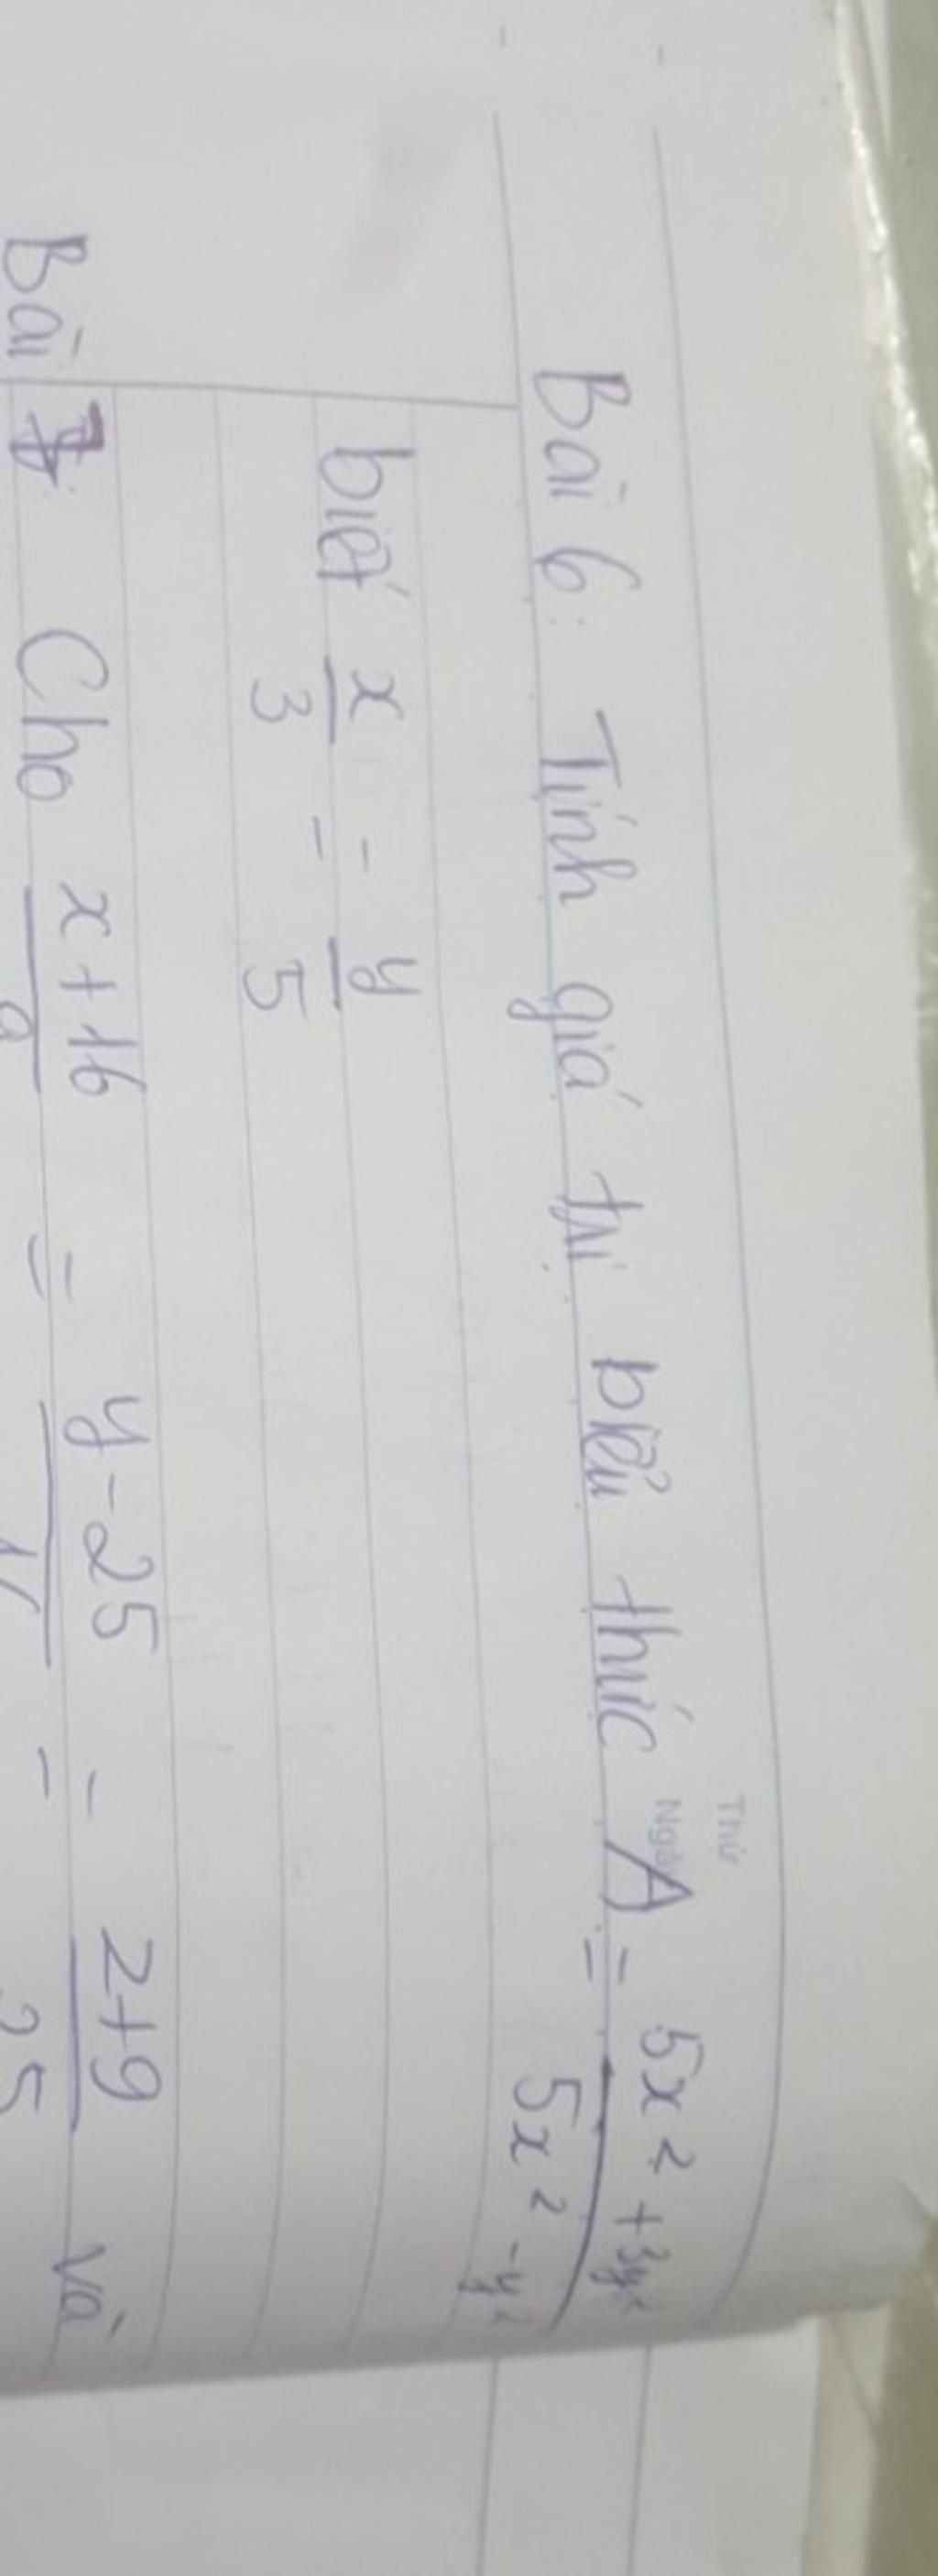 Thứ
Ngày
Bài 6: Tính giá trị biểu thức A = 5x² + 3y² / 5x² - y²
biết x/3 = y/5
Bài 7: Cho x+16/9 = y-25/ = z+9/25 và